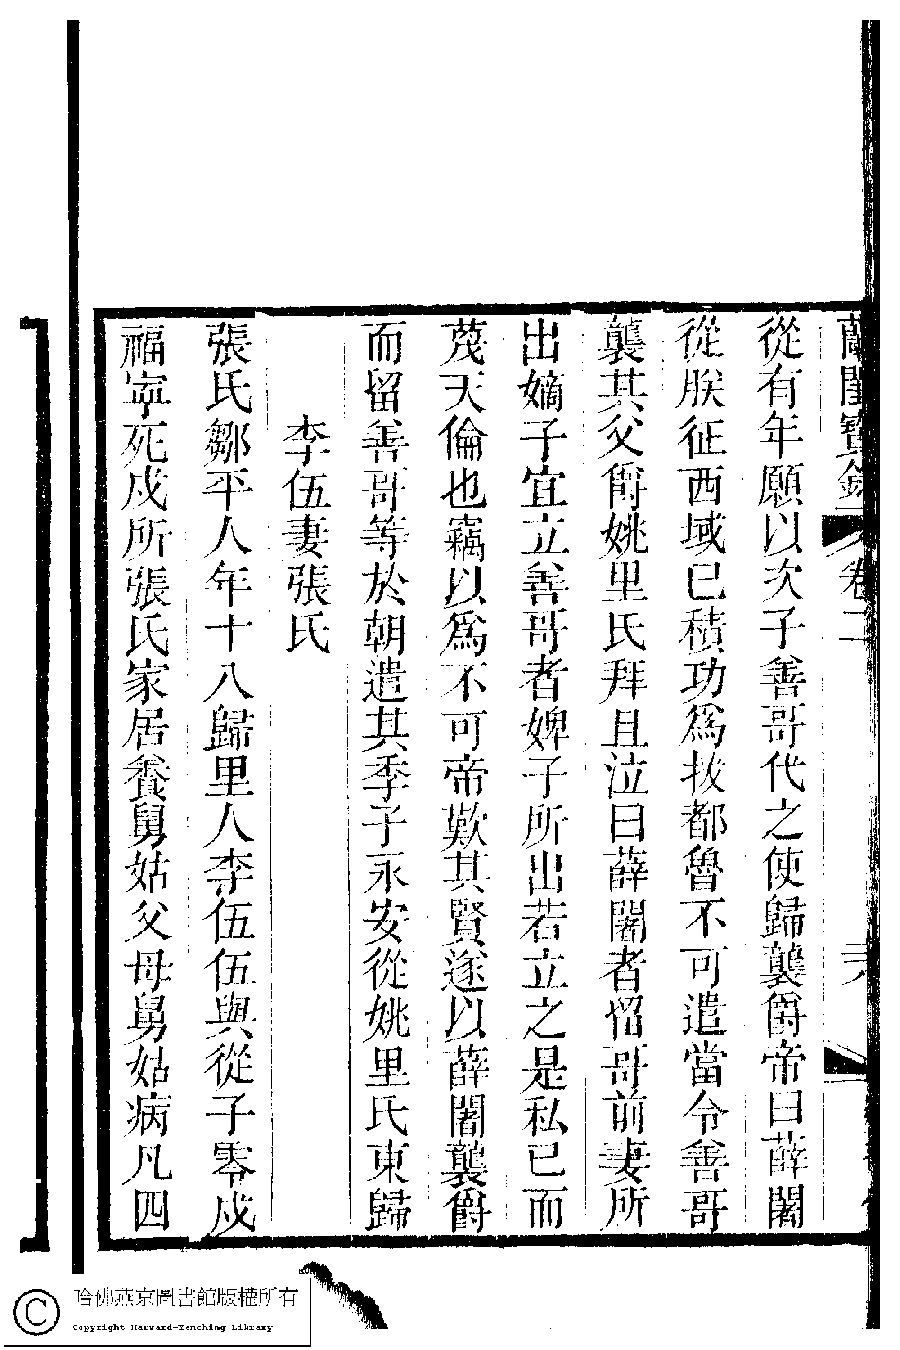 蘭閨寶錄 卷二
從有年願以次子善哥代之使歸襲爵帝曰薛闍
從朕征西域已積功爲拔都魯不可遣當令善哥
襲其父爵姚里氏拜且泣曰薛闍者留哥前妻所
出嫡子宜立善哥者婢子所出若立之是私已而
蔑天倫也竊以爲不可帝歎其賢遂以薛闍襲爵
而留善哥等於朝遣其季子永安從姚里氏東歸
李伍妻張氏
張氏鄒平人年十八歸里人李伍伍與從子零戍
福寧死戍所張氏家居養舅姑父母舅姑病凡四
哈佛燕京圖書館版權所有
Copyright Harvard-Yenching Library